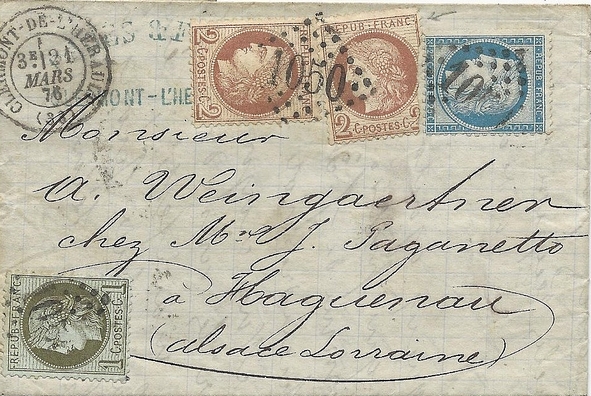 CLERMONT-DE-L'HERAULT
3E 31
MARS
76
(33)
MONT-L'HE
2 REPUB·FRANC· 2
C·POSTES·C
1050
REPUB·FRANC·
2 C·POSTES·C
REPUB·FRANC
105
Monsieur
A. Weingaertner
chez Mr J. Paganetto
à Haguenau
(alsace Lorraine)
REPUB·FRANC
1 C·POSTES·C 1